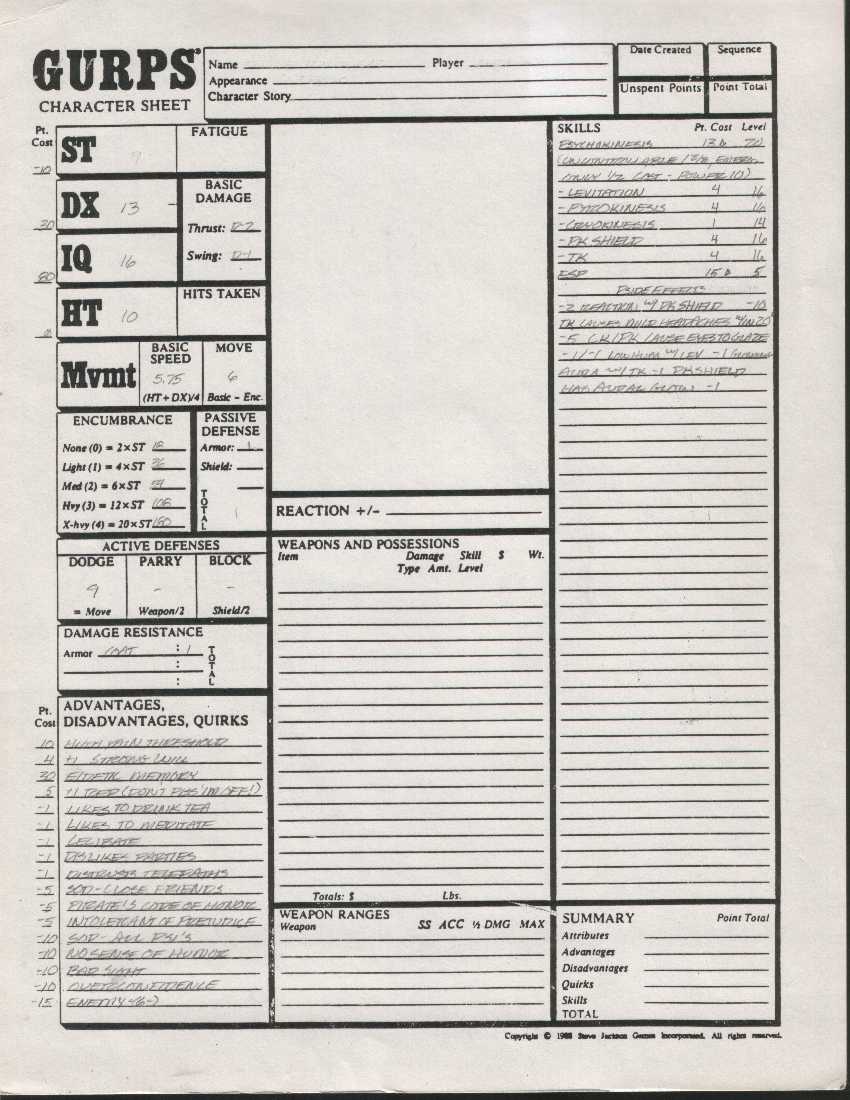 GURPS
CHARACTER SHEET
Name Player
Appearance
Character Story
Date Created Sequence
Unspent Points Point Total
Pt. Cost
-10 ST 9 FATIGUE
30 DX 13 BASIC DAMAGE
Thrust: D-2
80 IQ 16 Swing: D-1
0 HT 10 HITS TAKEN
Mvmt BASIC SPEED MOVE
5.75 6
(HT+DX)/4 Basic - Enc.
ENCUMBRANCE
None (0) = 2×ST 18
Light (1) = 4×ST 36
Med (2) = 6×ST 54
Hvy (3) = 12×ST 108
X-hvy (4) = 20×ST 180
PASSIVE DEFENSE
Armor: 1
Shield:
TOTAL 1
ACTIVE DEFENSES
DODGE PARRY BLOCK
9 - -
= Move Weapon/2 Shield/2
DAMAGE RESISTANCE
Armor COAT : 1 TOTAL
:
:
Pt. Cost ADVANTAGES, DISADVANTAGES, QUIRKS
10 HIGH PAIN THRESHOLD
4 +1 STRONG WILL
30 EIDETIC MEMORY
5 +1 REP (DON'T PISS 'IM OFF!)
-1 LIKES TO DRINK TEA
-1 LIKES TO MEDITATE
-1 CELIBATE
-1 DISLIKES PARTIES
-1 DISTRUSTS TELEPATHS
-5 SOD - CLOSE FRIENDS
-5 PIRATE'S CODE OF HONOR
-5 INTOLERANT OF PREJUDICE
-10 SOD - ALL PSI'S
-10 NO SENSE OF HUMOR
-10 BAD SIGHT
-10 OVERCONFIDENCE
-15 ENEMY
REACTION +/-
WEAPONS AND POSSESSIONS
Item Damage Skill $ Wt.
Type Amt. Level
Totals: $ Lbs.
WEAPON RANGES
Weapon SS ACC ½ DMG MAX
SKILLS Pt. Cost Level
PSYCHOKINESIS 20
ONLY 1/2 COST - POWER 10)
- LEVITATION 4 16
- PYROKINESIS 4 16
- CRYOKINESIS 1 14
- PK SHIELD 4 16
- TK 4 16
ESP 15 5
PSIDE EFFECTS
-2 REACTION W/ PK SHIELD -10
TK CAUSES MILD HEADACHES W/IN 20'
-5 CK/PK CAUSE EYES TO GLAZE
-1/-1 LOW HUM W/ LEV -1
AURA W/ TK -1 PK SHIELD
HAS AURAL GLOW -1
SUMMARY Point Total
Attributes
Advantages
Disadvantages
Quirks
Skills
TOTAL
Copyright © 1988 Steve Jackson Games Incorporated. All rights reserved.